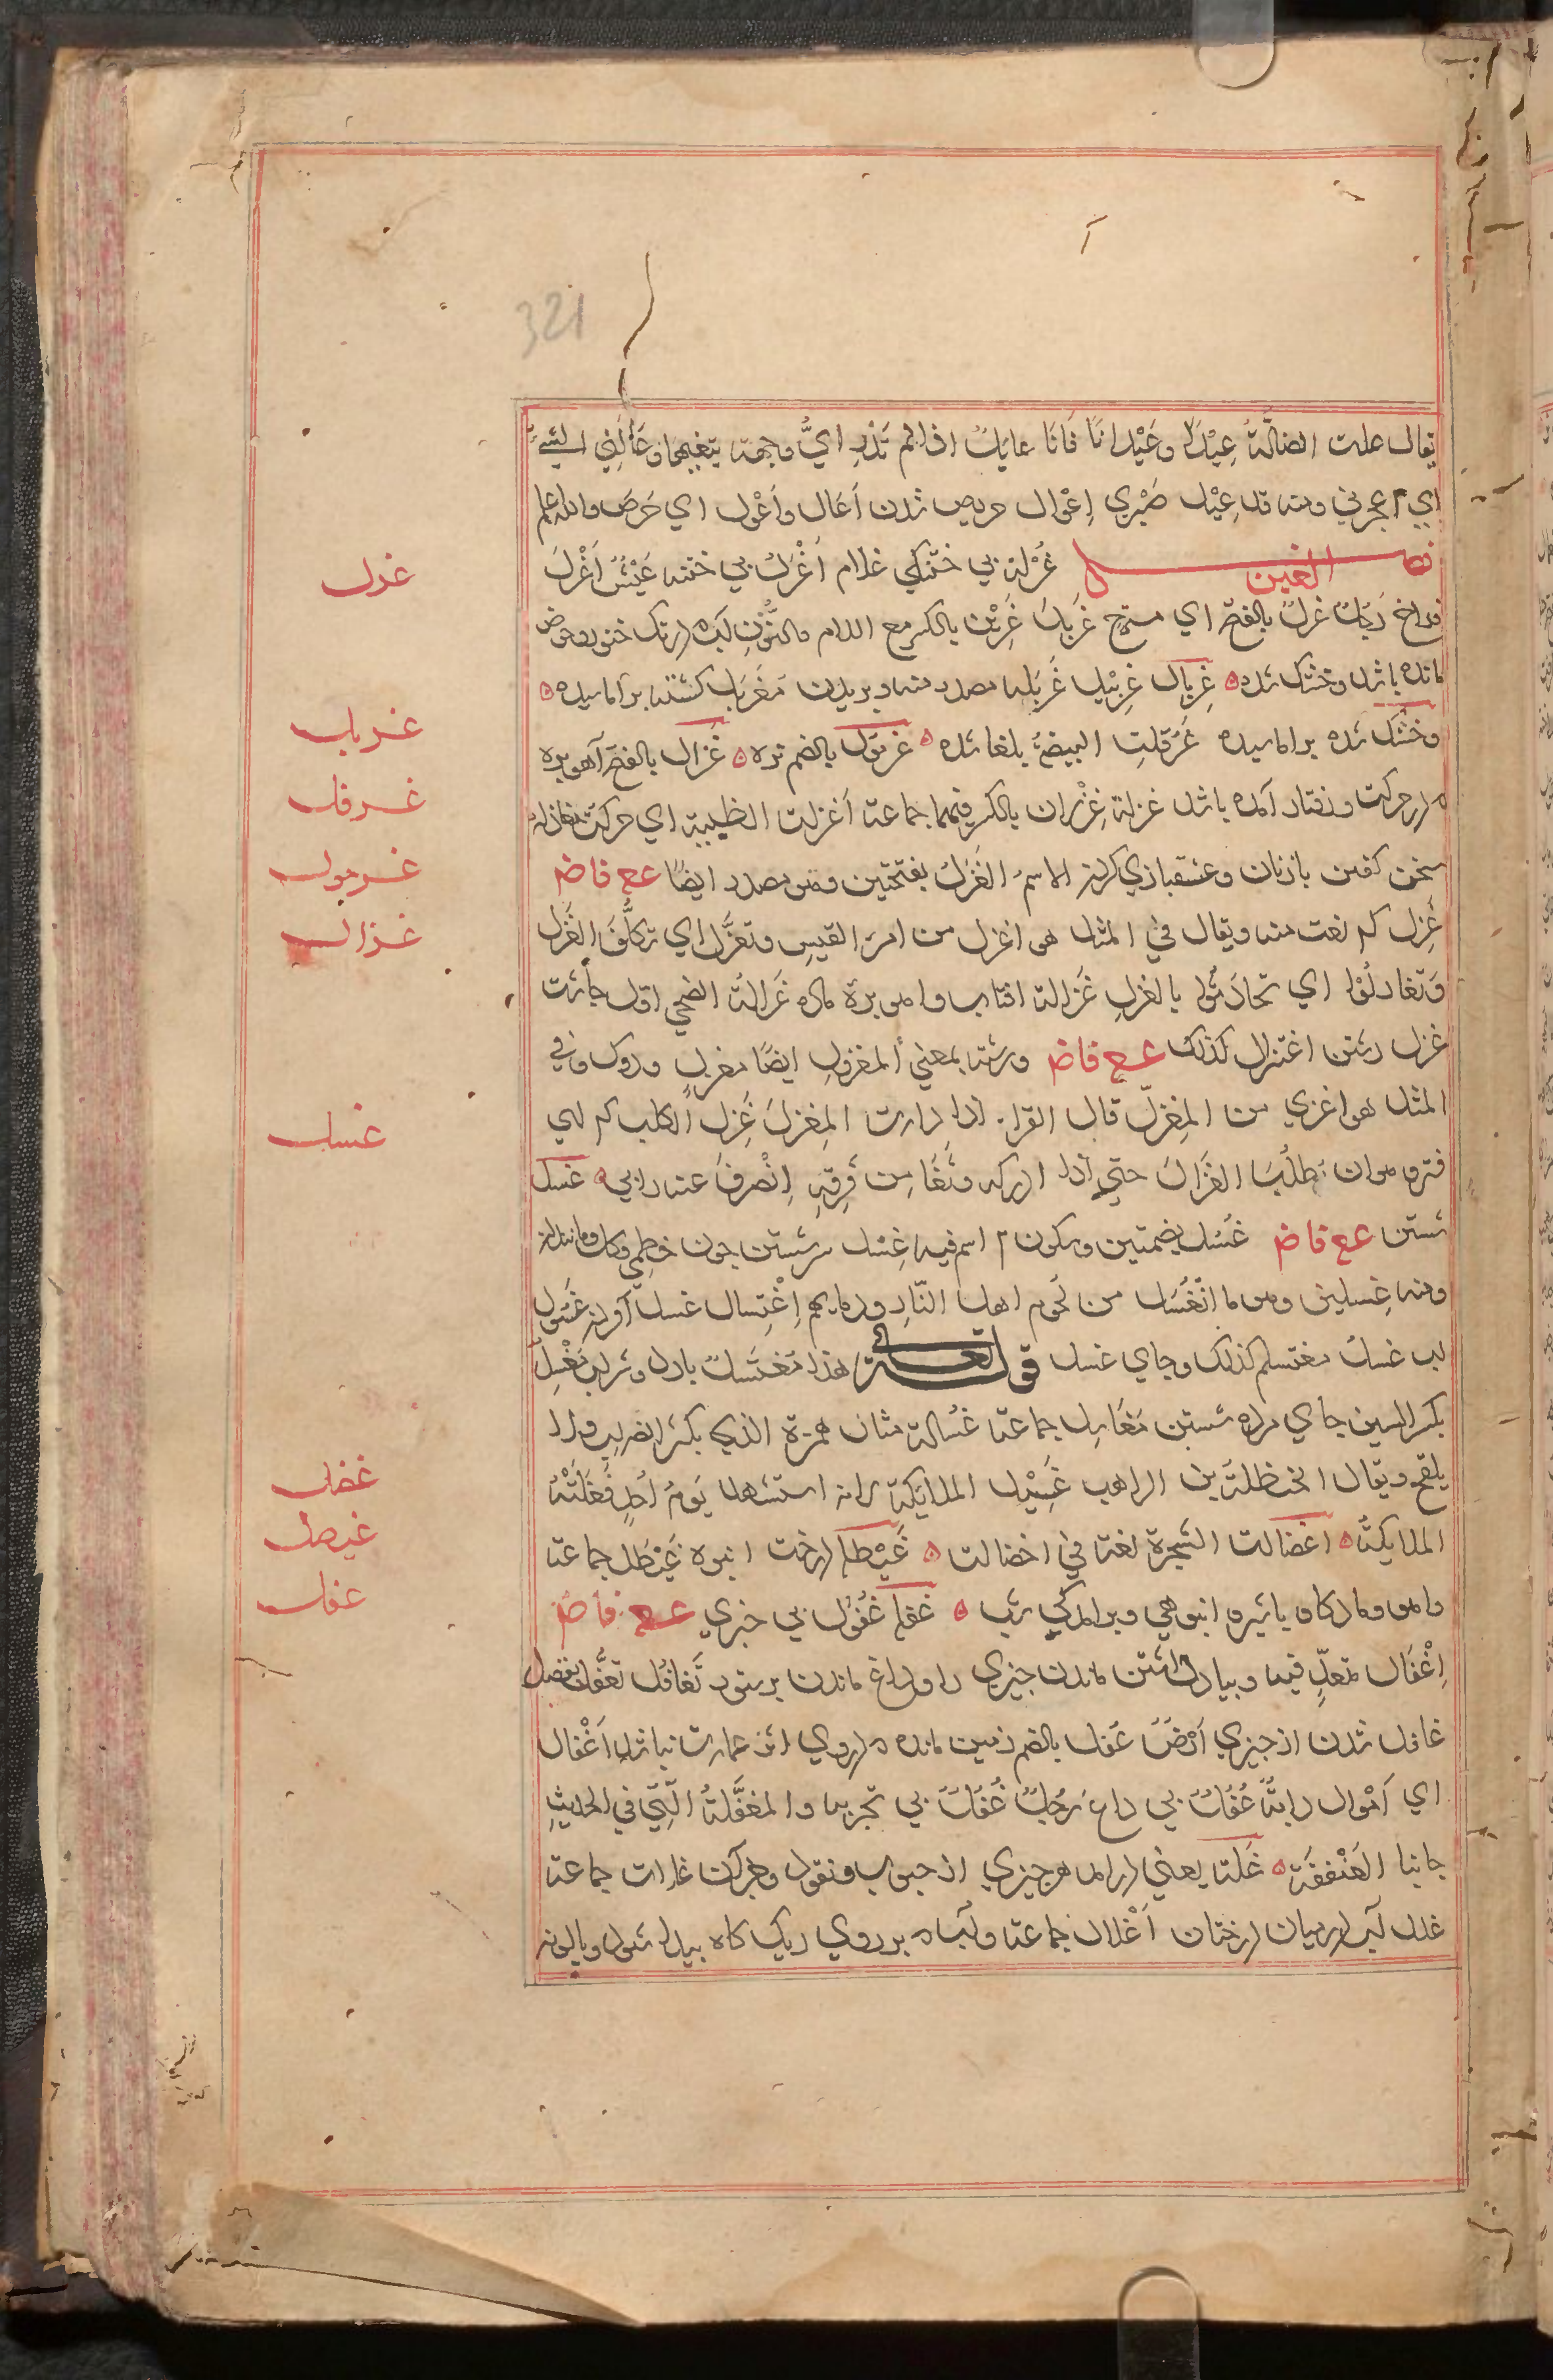 321
يقال علت الضالّةُ عِيْلاً وعَيْلانًا فَانَا عايَلٌ اذا لم تَدْرِ ايُّ وجهة يتغيها وعَالَنِي الشيءُ
اي اعجزني ومنه قد عِيْل صَبْري اِعْوال حريص شدن اَعَال واَعْول اي حَرَصَ والله اعلم
فصل الغين غُرْلة بي ختنكي غلام اَغْرَلُ بي ختنه عَيْشُ اَغْرلَ
غرل
فراخ غرلٌ بالفتح اي مسترخ غِرْيَن بالكسر مع اللام والنُّونِ
مانده باشد وخشك شده غِربال غِربِيل غَربَلة مصدر منه وبريدن مُغَربَل كشته براماسيده
غربل
وخشك شده براماسيده غَرْقلتِ البيضةُ بلغا شده غرمول بالضم نره غَزال بالفتح آهو بره
غرقل
در حركت ورفتار آمده باشد غزلة غِزْلان بالكسر فيهما جماعة اَغزلت الظبية اي حركت مغازلة
غرمول
سخن كفتن با زنان وعشقبازي كردن الاسمُ الغَزَلُ بفتحتين وهو مصدر ايضًا عع فاض
غَزِل كم نعت منه ويقال في المثل هو اغزل من امرَ القيسِ وتغزَّل اي تكلَّفَ الغَزَل
غزال
وَتغازلُوْا اي تحادَثُوا بالغزلِ غَزالة افتاب واهو برة ماده غَزالةُ الضحي اول جاشت
غزل رشتن اغتزال كذلك عع فاض ورشته بمعني المغزولِ ايضًا مغزل ودوك وفي
المثل هو اغزي من المِغزلِ قال الفرا اذا دارت المِغزلَ غَزِل الكلب كم اي
غسل
فتر وهو ان يَطلُبَ الغَزالَ حتي اذا ادركه وثَغَا مِن فَرِقِهِ اِنْصرفَ عنه غسل
شستن عع فاض غُسُل بضمتين وسكون اسم فيه غِسْل سرشستن جون خطمي وكل ومانند آن
ومنه غِسلين وهو ما انْغَسَل من لُحوم اهل النّارِ ودمايهم اِغْتِسال غسل آوردن غَسُول
اب غسل مغتسل كذلك وجاي غسل قوله تعالى هذا مُغتَسلٌ باردٌ وشرابٌ مَغْسِل
بكسر السين جاي مرده شستن مَغَاسِل جماعة غُسالة مثال همزة الذي يكثر الضراب ولا
يلقح ويقال لحنظلة بن الراهب غَسِيْل الملايكة لانه استشهد يَومَ اُحُدٍ فغَسَلَتْهُ
غضل
الملايكةُ اغضالت الشجرة لغة في اخضالت غَيْطل درخت انبوه غَيْطَل جماعة
غيطل
وآهو وماده كاو با شيرو انبوهي ودرامدكي شب غفل غُفُوْل بي خبري عع فاض
غفل
اِغْفَال متعدٍّ فيه وبياد داشتن ماندن جيزي را وداغ ماندن برستور تَغافُل تغفُّل بقصد
غافل شدن از جيزي اَرْضٌ غفل بالضم زمين مانده درروي اثر عمارت نباشد اَغْفال
اي اَمْوال دابّةٌ غُفُلٌ بي داغ رَجُلٌ غُفُلٌ بي تجربه والمغفَّلةُ الّتي في الحديثِ
جانبا العَنْفقةِ غَلّة يعني درامد هرجيزي از حبوب ونقود وجزآن غلات جماعة
غلل آب درميان درختان اَغْلال جماعة وآب برروي ريك كاه بيدا شود